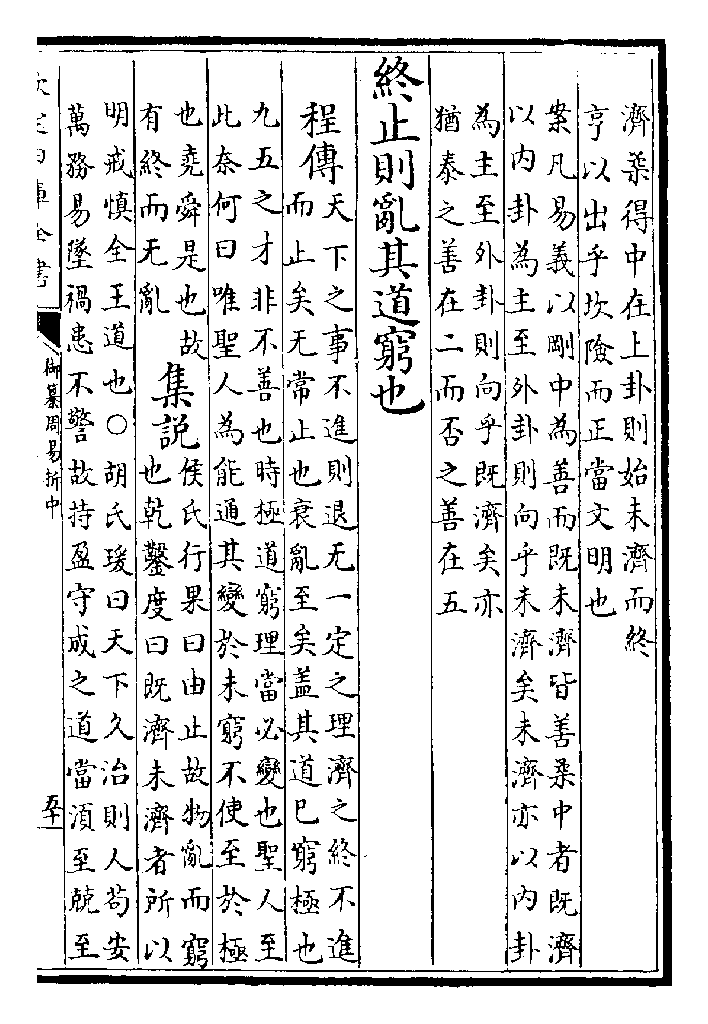 濟柔得中在上卦則始未濟而終
亨以出乎坎險而正當文明也
案凡易義以剛中為善而既未濟皆善柔中者既濟
以内卦為主至外卦則向乎未濟矣未濟亦以内卦
為主至外卦則向乎既濟矣亦
猶泰之善在二而否之善在五
終止則亂其道窮也
程傳天下之事不進則退无一定之理濟之終不進
而止矣无常止也衰亂至矣盖其道已窮極也
九五之才非不善也時極道窮理當必變也聖人至
此奈何曰唯聖人為能通其變於未窮不使至於極
也堯舜是也故
有終而无亂
集説侯氏行果曰由止故物亂而窮
也乾鑿度曰既濟未濟者所以
明戒慎全王道也○胡氏瑗曰天下久治則人苟安
萬務易墜禍患不警故持盈守成之道當須至兢至
欽定四庫全書
御纂周易折中
五十一